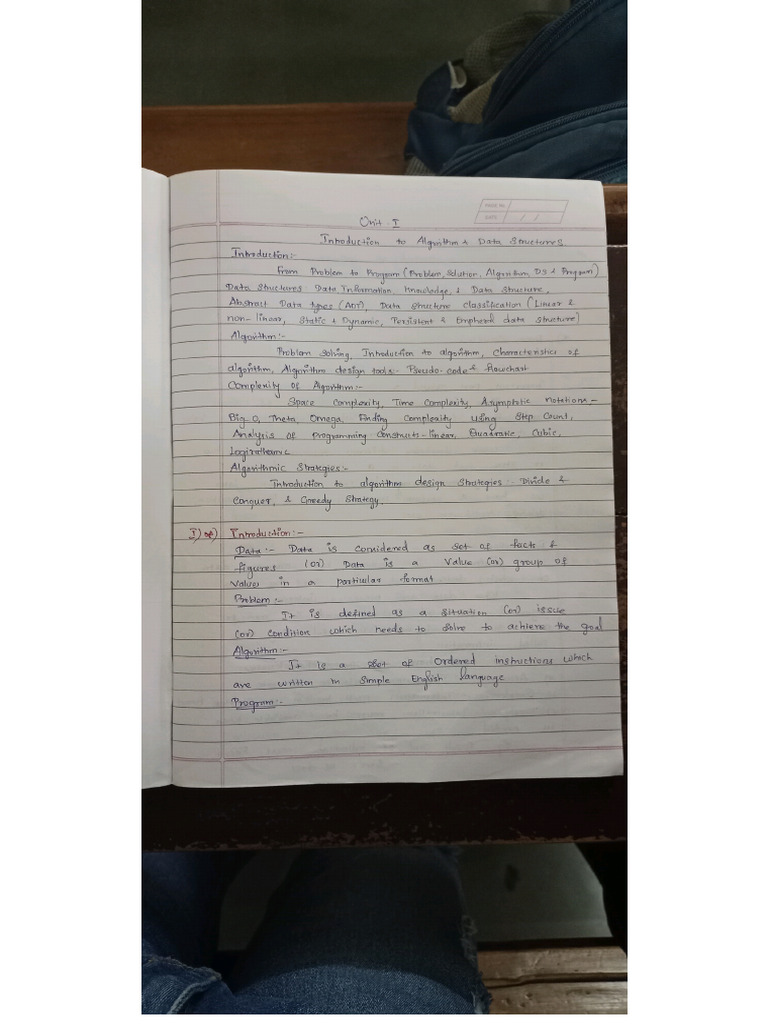 PAGE No.
DATE / /
Unit - I
Introduction to Algorithm & Data Structures
Introduction:-
From Problem to Program (Problem, Solution, Algorithm, DS & Program)
Data Structures Data, Information, Knowledge, & Data Structure,
Abstract Data types (ADT), Data Structure classification (Linear &
non-linear, Static & Dynamic, Persistent & Empheral data structure)
Algorithm:-
Problem Solving, Introduction to algorithm, Characteristics of
algorithm, Algorithm design tools- Pseudo-code & flowchart
Complexity of Algorithm:-
Space Complexity, Time Complexity, Asymptotic notations,-
Big-O, Theta, Omega, Finding Complexity using Step Count,
Analysis of Programming Constructs-linear, Quadratic, Cubic,
Logirathamic
Algorithmic Strategies:-
Introduction to algorithm design Strategies:- Divide &
Conquer, & Greedy Strategy.
I) Introduction:-
Data:- Data is considered as set of facts &
figures (or) Data is a Value (or) group of
Values in a particular format
Problem:-
It is defined as a Situation (or) issue
(or) condition which needs to solve to achieve the goal
Algorithm:-
It is a set of Ordered instuctions which
are written in simple English language
Program:-